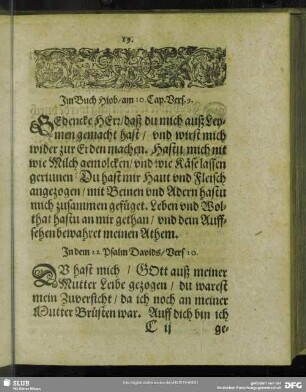 19.
Im Buch Hiob/ am 10. Cap. Vers. 9.
GEdencke HErr/ daß du mich auß Ley-
men gemacht hast/ vnd wirst mich
wider zur Erden machen. Hastu mich nit
wie Milch gemolcken/ vnd wie Käse lassen
gerinnen? Du hast mir Haut vnd Fleisch
angezogen/ mit Beinen vnd Adern hastu
mich zusammen gefüget. Leben vnd Wol-
that hastu an mir gethan/ vnd dein Auff-
sehen bewahret meinen Athem.
In dem 22. Psalm Davids/ Vers 10.
DV hast mich/ GOtt auß meiner
Mutter Leibe gezogen/ du warest
mein Zuversicht/ da ich noch an meiner
Mutter Brüsten war. Auff dich bin ich
C ij ge-
SLUB
Wir führen Wissen.
gefördert von der
Deutschen Forschungsgemeinschaft